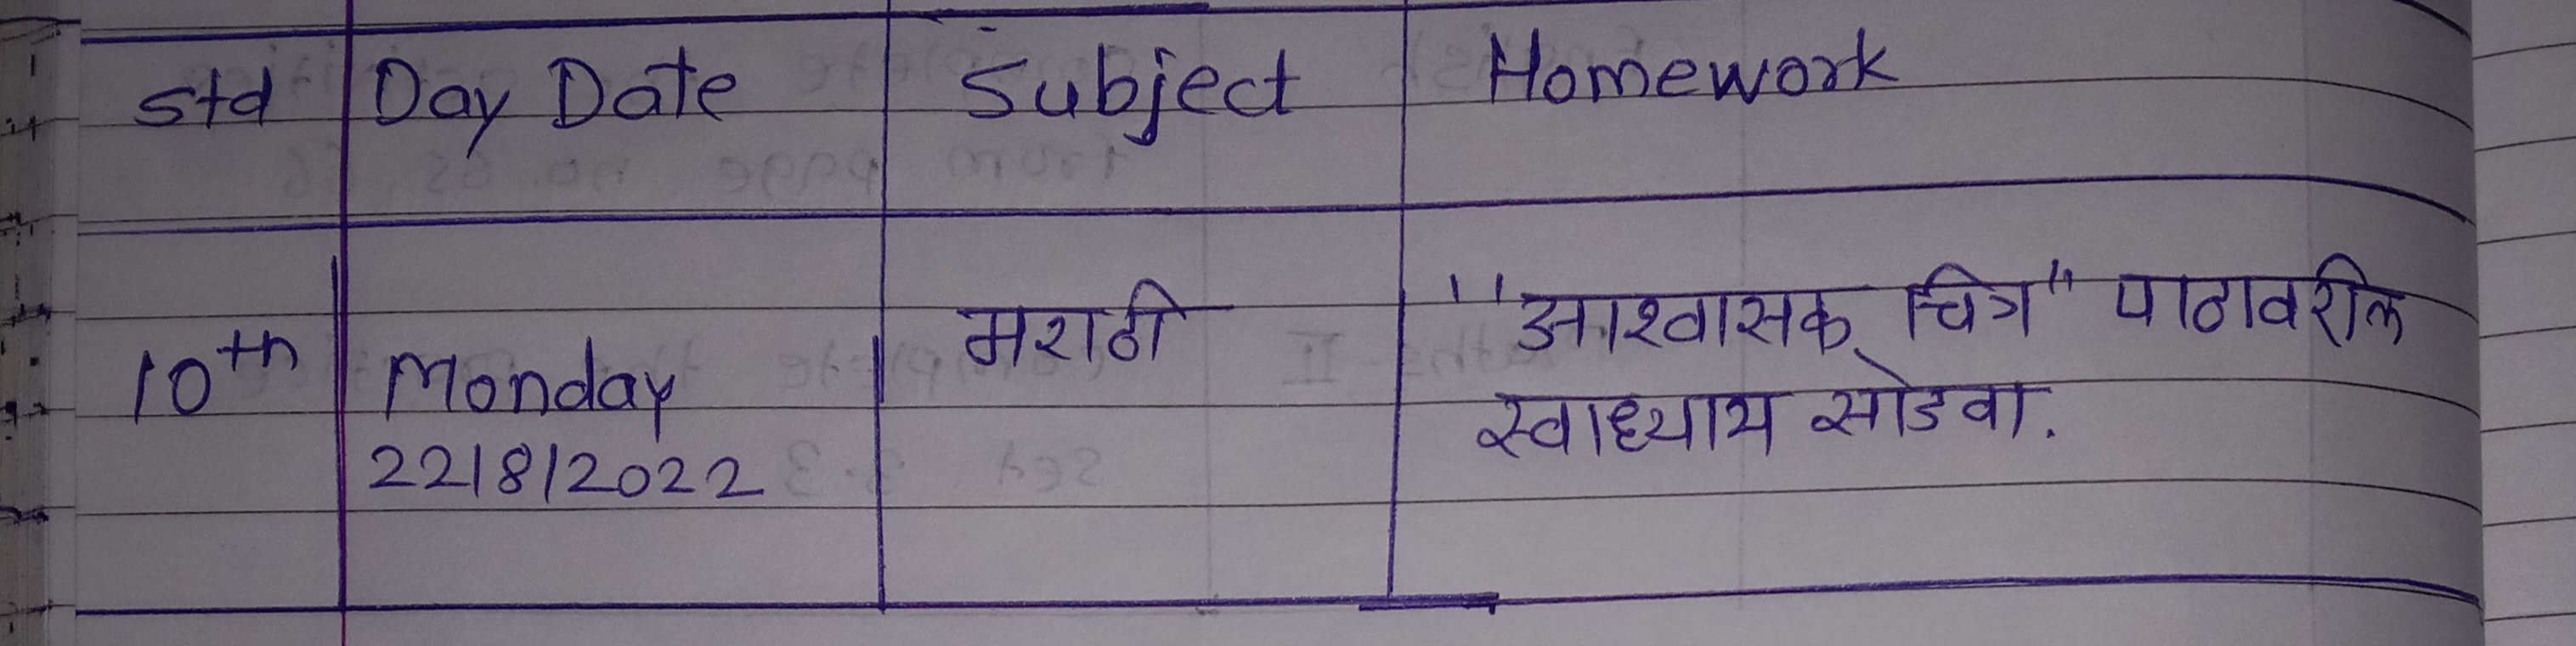 Std Day Date Subject Homework
10th Monday मराठी "आश्वासक चित्र" पाठावरील
22/8/2022 स्वाध्याय सोडवा.